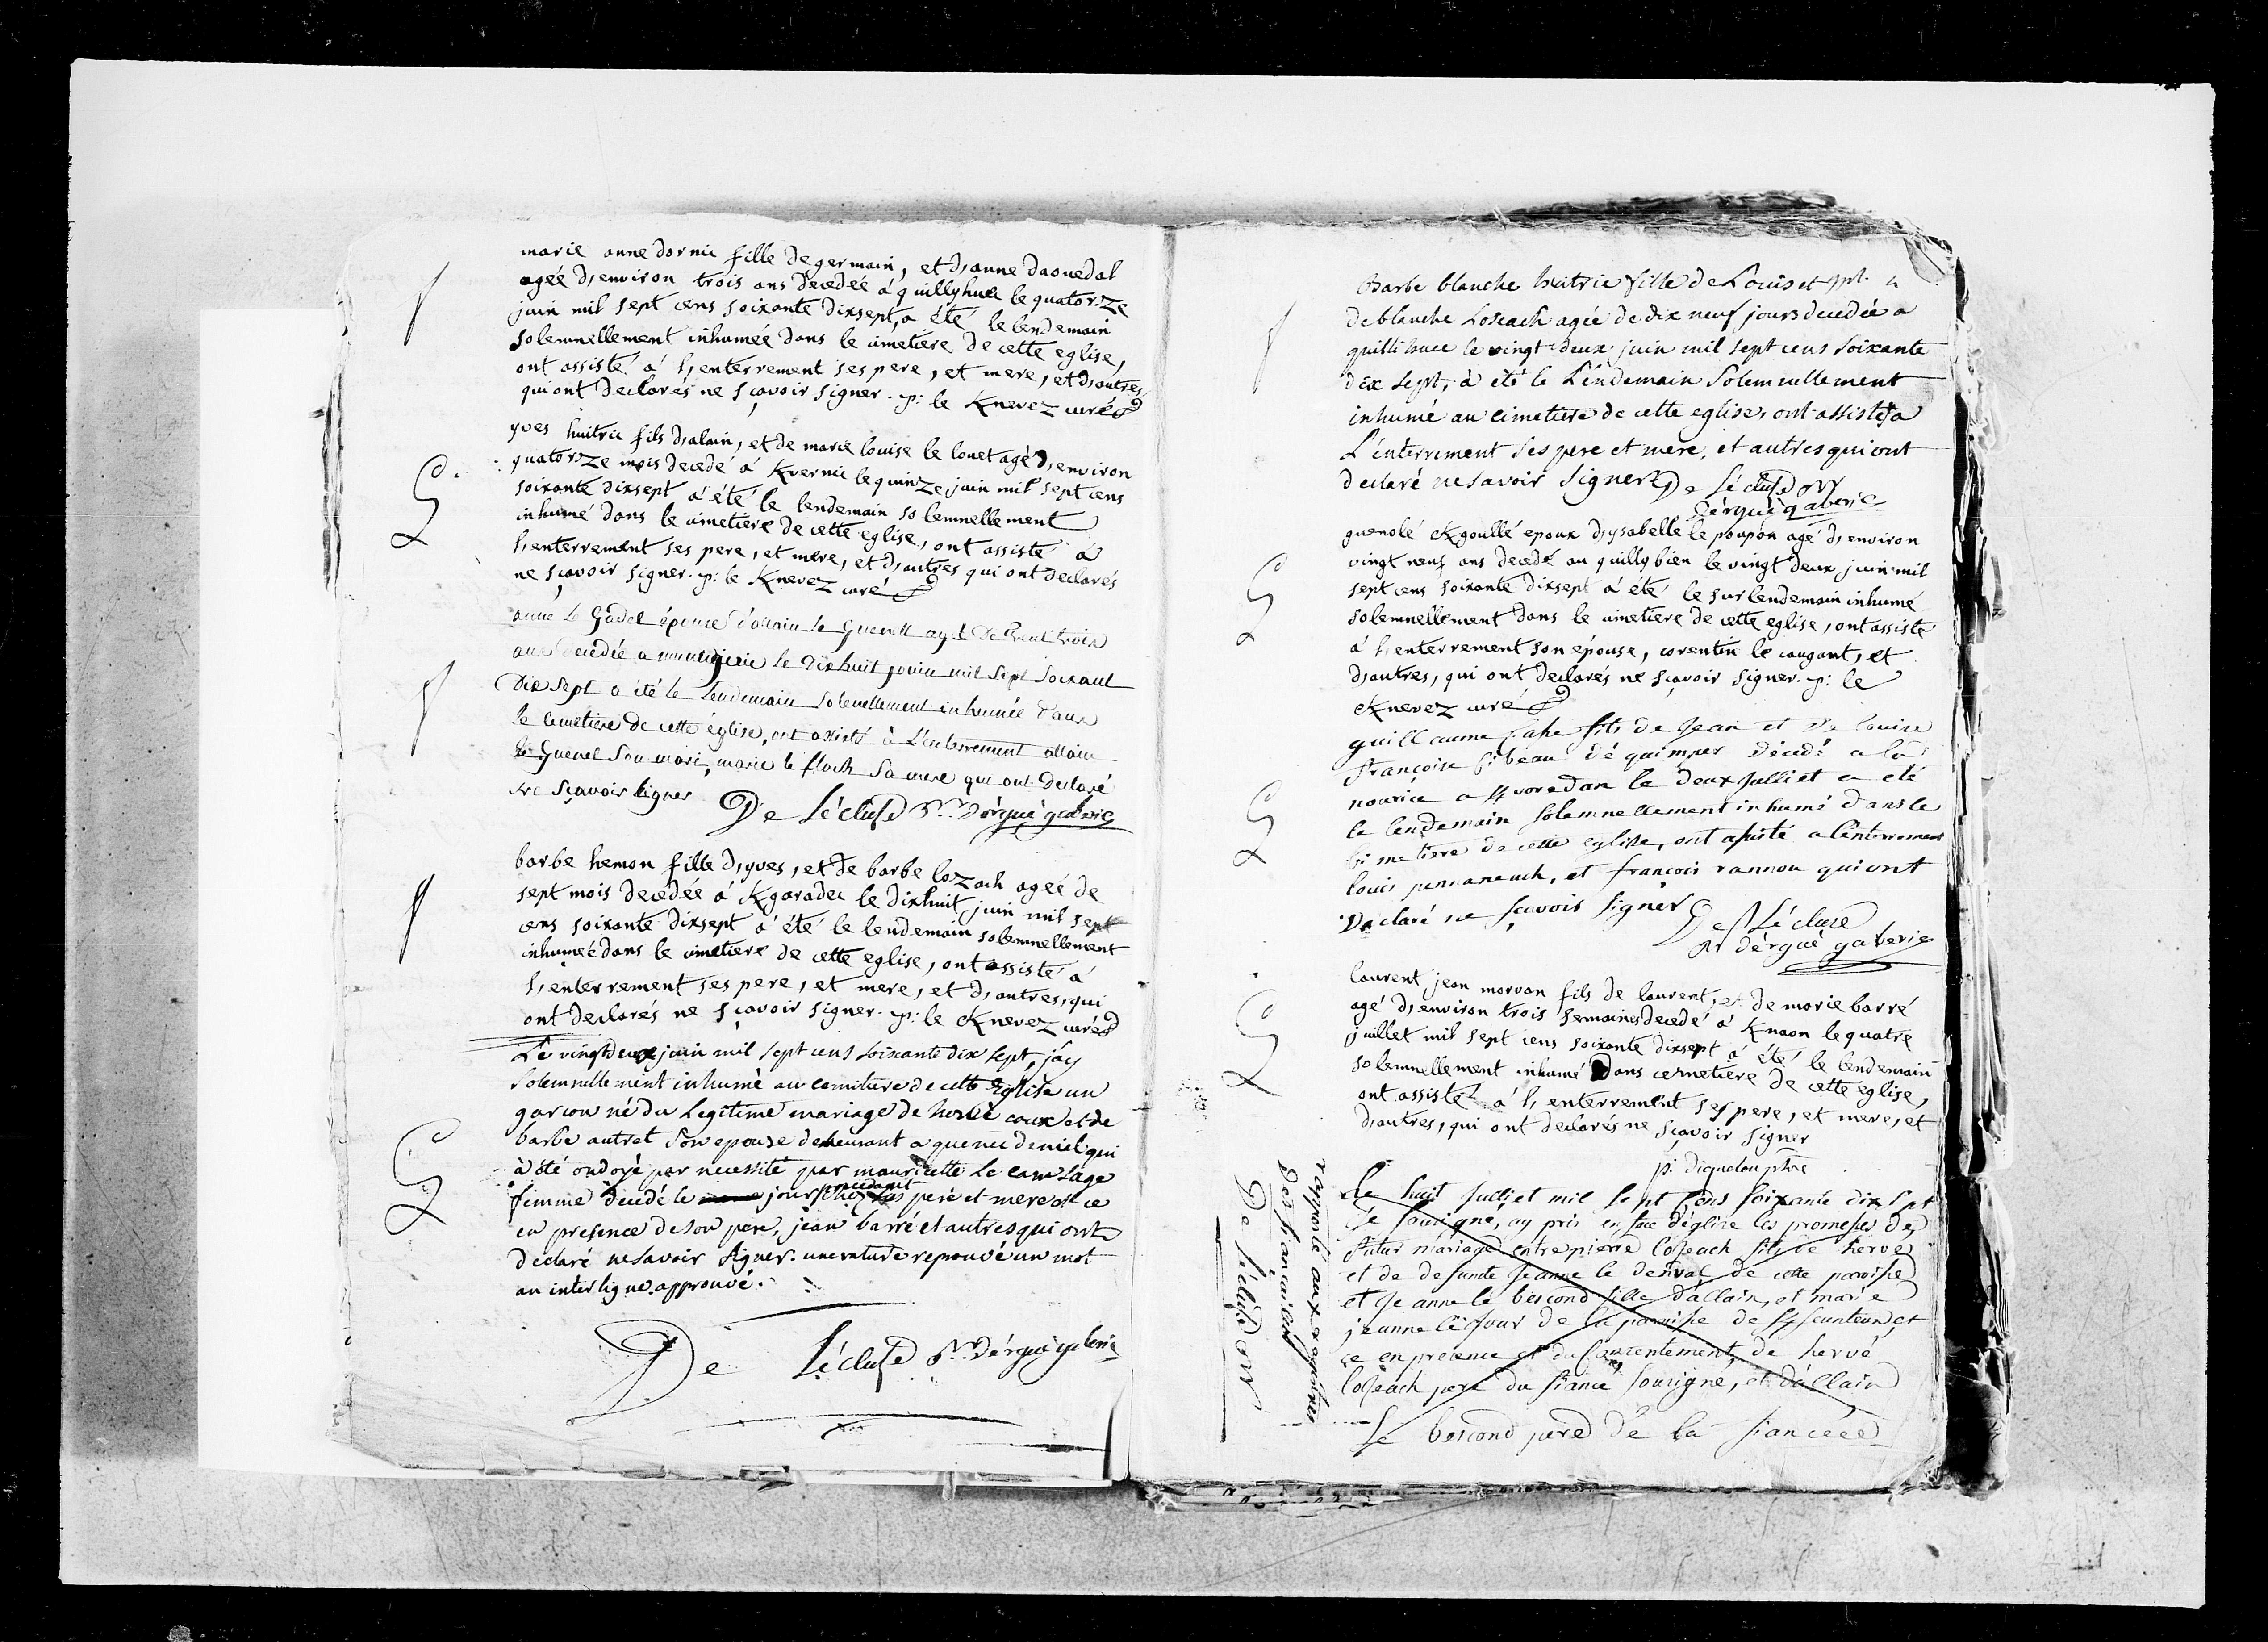 marie anne dornic fille de germain, et d,anne daouedal
agéé d,environ trois ans decedéé á quillyhuec le quatorze
juin mil sept cens soixante dixsept, a été le lendemain
solemnellement inhuméé dans le cimetiere de cette eglise,
ont assisté á l,enterrement ses pere, et mere, et d,autres,
qui ont declarés ne sçavoir signer. p: le Knevez curé
yves huitric fils d,alain, et de marie louise le louet agé d,environ
quatorze mois decedé á Kvernic le quinze juin mil sept cens
soixante dixsept á été le lendemain solemnellement
inhumé dans le cimetiere de cette eglise, ont assisté á
l,enterrement ses pere, et mere, et d,autres qui ont declarés
ne sçavoir signer. p: le Knevez curé
anne le Gadel épouse d'allain le Guenel agé de trent trois
ans decedée a le dixhuit jouin mil sept soixant
Dix sept a été le lendemain solenellement inhumée dans
le cemetiere de cette église, ont assisté à l'enterrement allain
le Guenel son mari, marie le floch sa mere qui ont declaré
ne sçavoir signer De Lécluse Rr. dérgué gaberic
barbe hemon fille d,yves, et de barbe lozach agéé de
sept mois decedéé á Kgaradec le dixhuit juin mil sept
cens soixante dixsept á été le lendemain solemnellement
inhuméé dans le cimetiere de cette eglise, ont assisté á
l,enterrement ses pere, et mere, et d,autres, qui
ont declarés ne sçavoir signer. p: le Knevez curé
Le vingt deux juin mil sept cens soixante dix sept, jay
solemnellement inhumé au cemitiere de cette Eglise un
garcon né du legitime mariage de hervé caux et de
barbe autret son epouse demeurant a quenec deniel qui
à été ondoyé par necessité par mauricette le cam sage
femme decedé le jour precedant chez ses pere et mere et ce
en presence de son pere, jean barré et autres qui ont
declaré ne savoir signer. une rature reprouvé un mot
an interligne approuvé.
De Lécluse Rr. dérgué gaberic
Barbe blanche huitric fille de Louis et
de blanche Loseach agée de dix neuf jours decedée a
quillihuec le vingt deux juin mil sept cens soixante
dix sept, à été le Lendemain solemnellement
inhumé au cimetiere de cette eglise, ont assisté a
L'enterrement ses pere et mere, et autres qui ont
declaré ne savoir signer De Lécluse Rr
dérgué gaberic
guenolé Kgoullé epoux d,ysabelle le poupon agé d,environ
vingt neuf ans decedé au quillybien le vingt deux juin mil
sept cens soixante dixsept á été le surlendemain inhumé
solemnellement dans le cimetiere de cette eglise, ont assisté
á l,enterrement son épouse, corentin le caugant, et
d,autres, qui ont declarés ne sçavoir signer. p: le
Knevez curé
guillaume fils de Jean et de louise
françoise de quimper decedé a la
nourice a Kvoredan le deux julliet a été
le lendemain solemnellement inhumé dans le
cimetiere de cette eglise, ont asisté a l'enterrement
louis pennaneach, et françois rannou qui ont
declaré ne sçavoir signer De Lécluse
Rr dérgué gaberic
laurent jean morvan fils de laurent, et de marie barré
agé d,environ trois semaines decedé á Knaon le quatre
juillet mil sept cens soixante dixsept á été le lendemain
solemnellement inhumé Dans cemetiere de cette eglise,
ont assisté á l,enterrement ses pere, et mere, et
d,autres, qui ont declarés ne sçavoir signer
p: diquelou ptre
rapporté aux registres
des fiançailles
De Lécluse Rr
Le huit julliet mil sept cens soixante dix sept
Je sousigné, ay pris en face d'église les promesses de
futur mariage entre pierre loseach fils de hervé
et de defunte jeanne le denval de cette paroisse
et Jeanne le bescond fille d'allain, et marie
jeanne le four de la paroisse de et
ce en presence et du consentement de hervé
loseach pere du fiancé sousigné, et d'allain
le bescond pere de la fiancéé